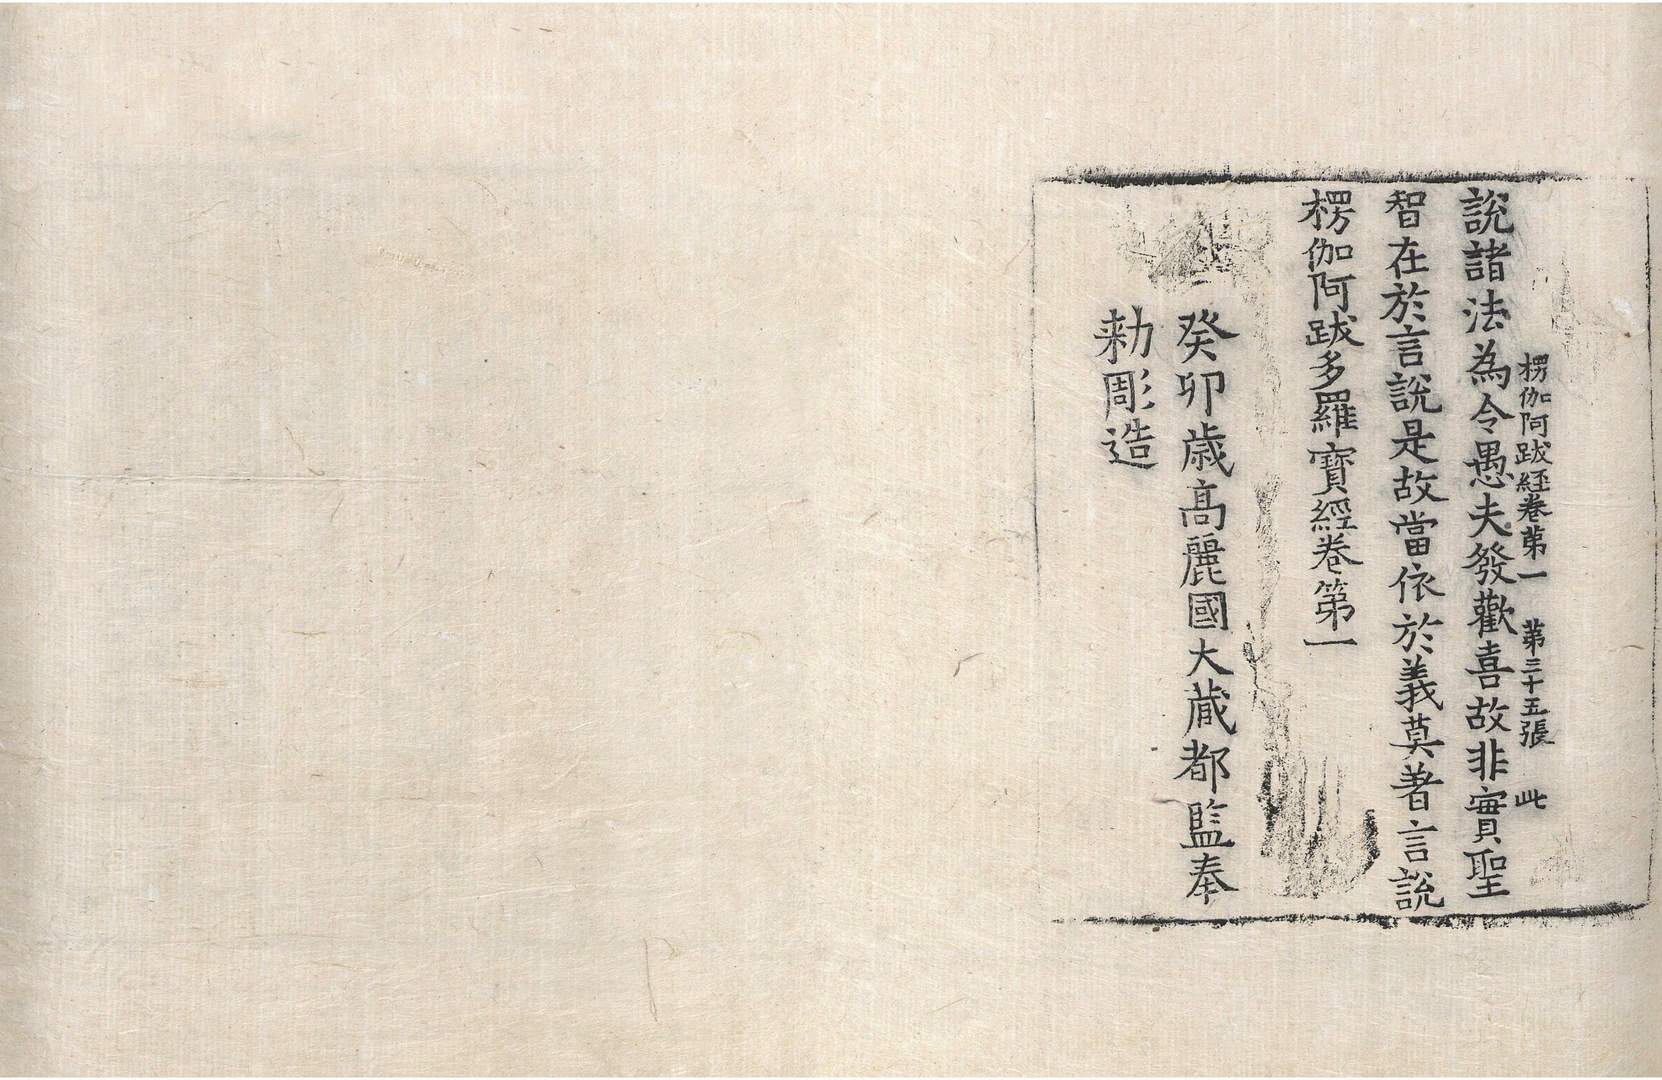 楞伽阿跋経卷苐一 苐三十五張 此
說諸法為令愚夫發歡喜故非實聖
智在於言說是故當依於義莫著言說
楞伽阿跋多羅寶經卷第一
癸卯歳高麗國大藏都監奉
勑彫造